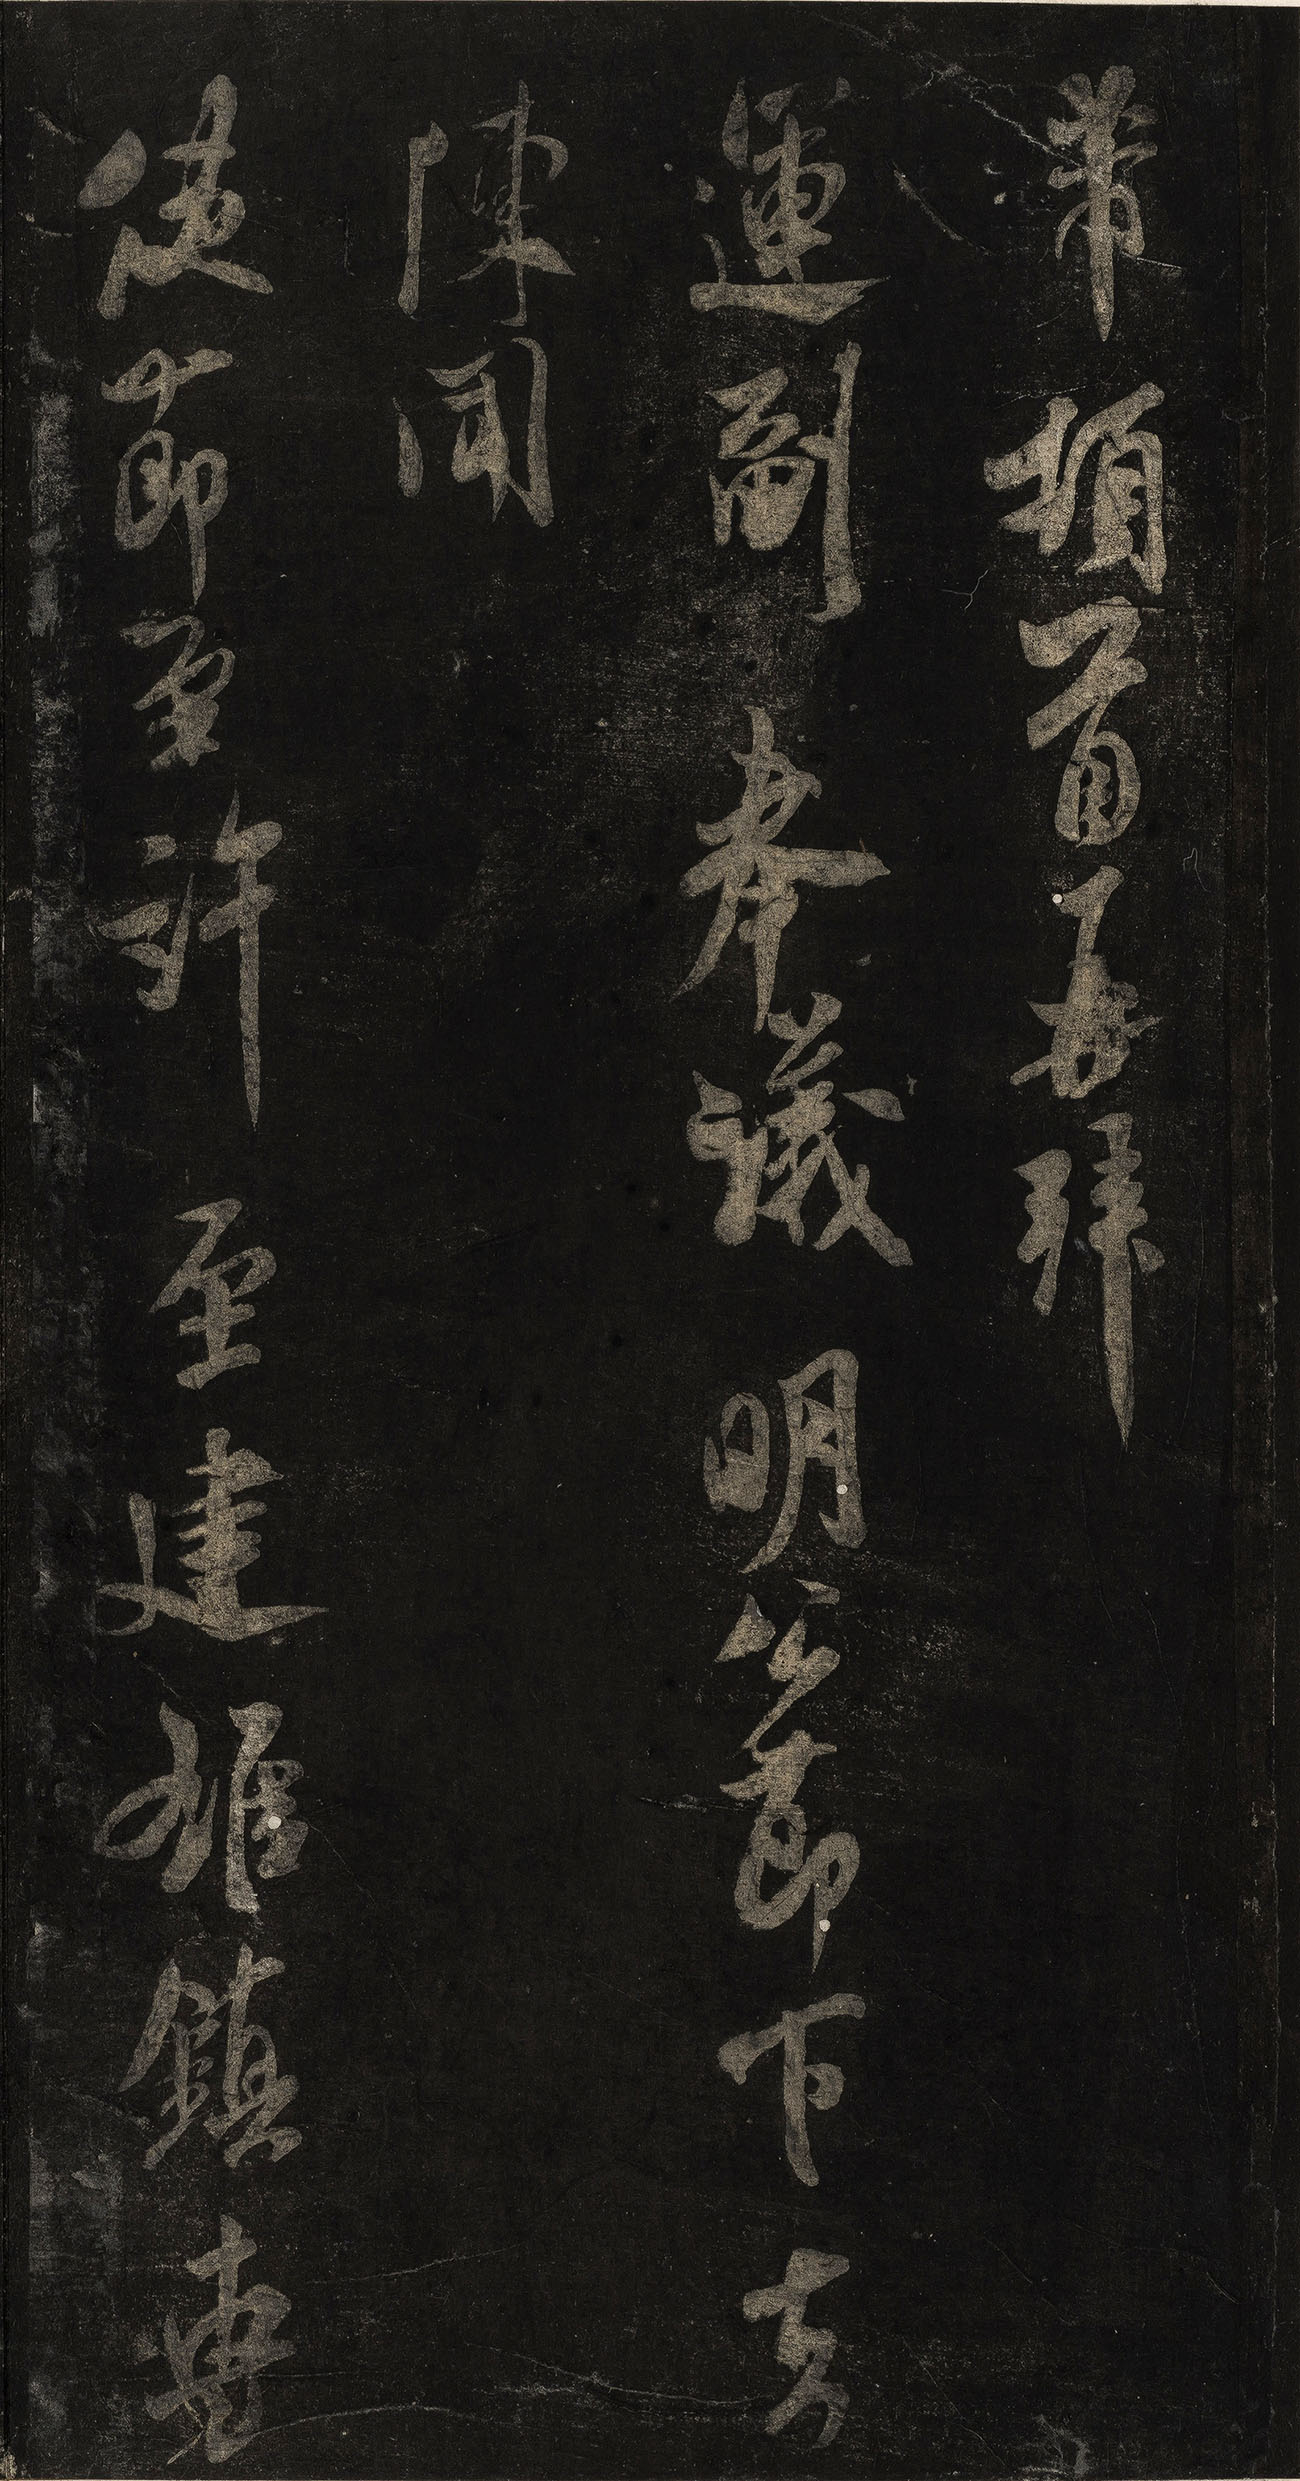 芾頓首再拜
運副奉議明公節下方
陳聞
使節至許至建雄鎮專